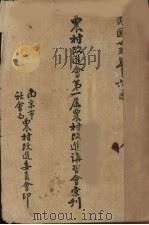 民國廿五年六月
農村改進會第一屆農村改進講習會彙刊
南京市農村改進委員會印
社會局